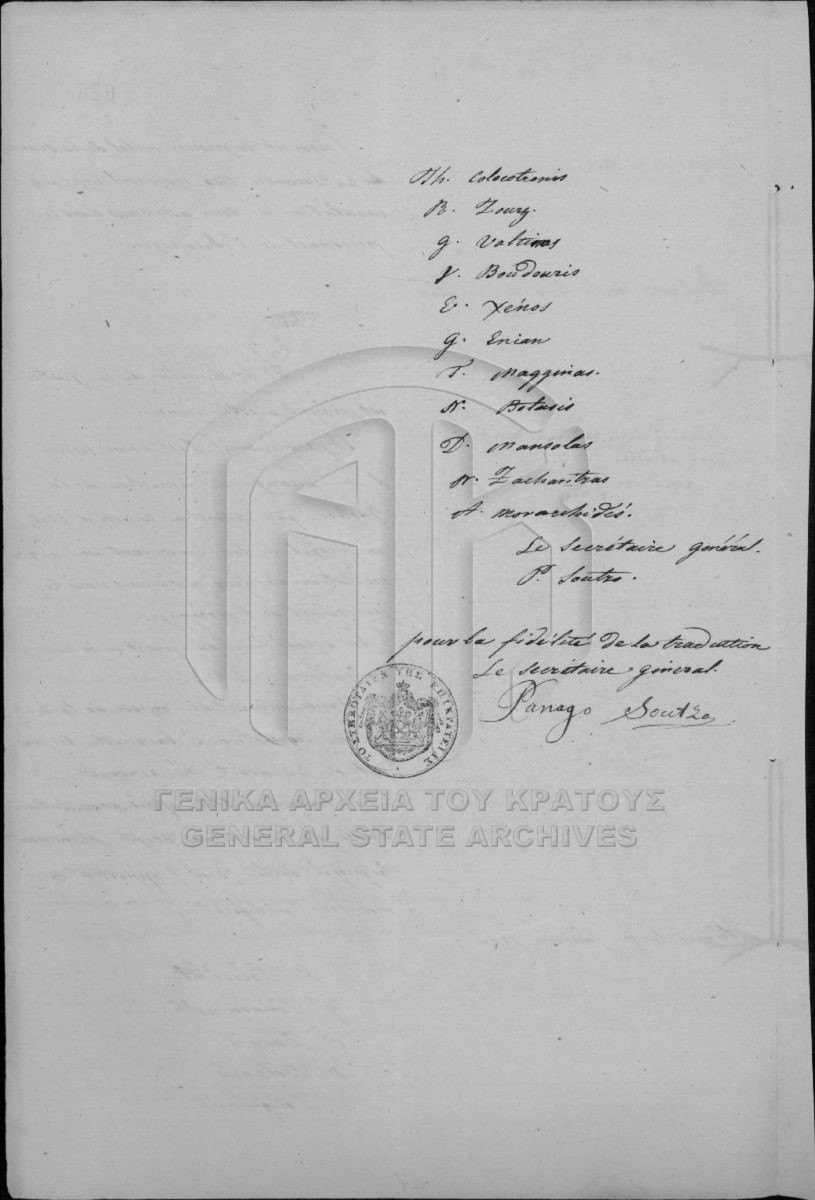 Th. Colocotronis
R. Zoury.
G. Valtinos
V. Boudouris
E. Xénos
G. Enian
T. Magginas.
N. Botasis
D. Mansolas
N. Zacharitzas
A. Monarchidés.
Le secrétaire général.
P. Soutzo.
pour la fidélité de la traduction
Le secrétaire général.
Panago Soutzo
ΤΟ ΣΥΜΒΟΥΛΙΟΝ ΤΗΣ ΕΠΙΚΡΑΤΕΙΑΣ
ΓΕΝΙΚΑ ΑΡΧΕΙΑ ΤΟΥ ΚΡΑΤΟΥΣ
GENERAL STATE ARCHIVES